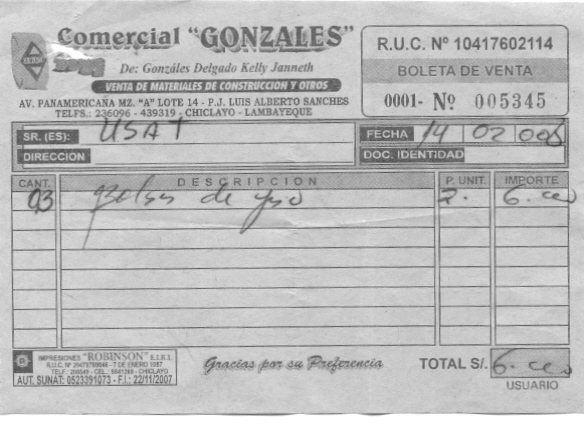 Comercial "GONZALES"
De: Gonzáles Delgado Kelly Janneth
VENTA DE MATERIALES DE CONSTRUCCION Y OTROS
AV. PANAMERICANA MZ. "A" LOTE 14 - P.J. LUIS ALBERTO SANCHES
TELFS.: 236096 - 439319 - CHICLAYO - LAMBAYEQUE
R.U.C. Nº 10417602114
BOLETA DE VENTA
0001- Nº 005345
SR. (ES): USAT
DIRECCION
FECHA 14 02 008
DOC. IDENTIDAD
CANT. DESCRIPCION P. UNIT. IMPORTE
03 Bolsas de yeso 2. 6.
IMPRESIONES "ROBINSON" E.I.R.L.
7 DE ENERO 1087
CHICLAYO
AUT. SUNAT: 0523391073 - F.I.: 22/11/2007
Gracias por su Preferencia
TOTAL S/. 6.
USUARIO